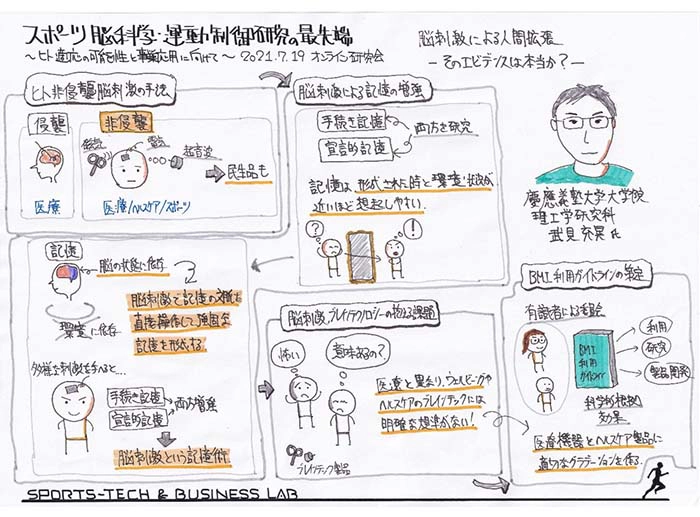 スポーツ脳科学・運動制御研究の最先端
〜ヒト適応の可能性と事業応用に向けて〜 2021.7.19 オンライン研究会
脳刺激による人間拡張
－そのエビデンスは本当か？－
慶應義塾大学大学院
理工学研究科
武見充晃 氏
ヒト非侵襲脳刺激の手法
侵襲
医療
非侵襲
磁気
電気
超音波
医療/ヘルスケア/スポーツ
民生品も
脳刺激による記憶の増強
手続き記憶
宣言的記憶
両方を研究
記憶は、形成された時と環境・状況が
近いほど想起しやすい。
?
!
記憶
脳の状態に依存
環境に依存
脳刺激で記憶の対象を
直接操作して、強固な
記憶を形成する。
多様な刺激を与えると…
手続き記憶
宣言的記憶
両方増強
脳刺激という記憶術
脳刺激、ブレインテクノロジーの抱える課題
怖い
意味あるの？
ブレインテック製品
医療と異なり、ウェルビーイングや
ヘルスケアのブレインテックには
明確な基準がない！
BMI利用ガイドラインの策定
有識者による委員会
BMI
利用
ガイドライン
利用
研究
製品開発
科学的根拠
効果
医療機器とヘルスケア製品に
適切なグラデーションを作る。
SPORTS-TECH & BUSINESS LAB